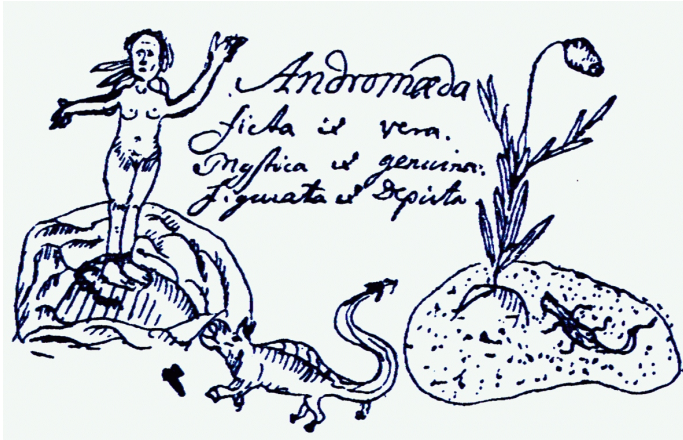 Andromæda
ficta et vera.
Mystica et genuina.
figurata et Depicta